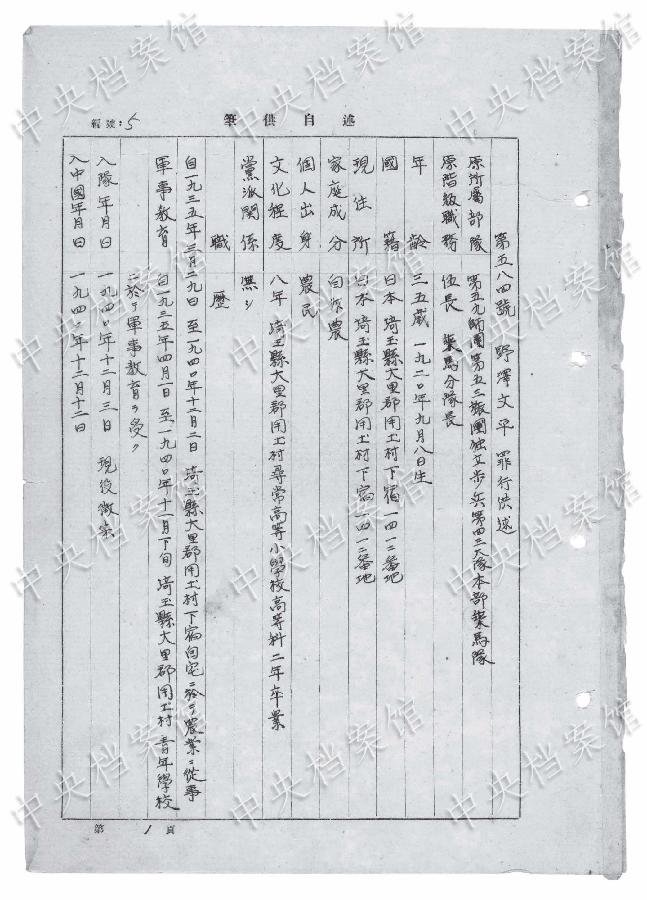 述自供筆
編號：5
第五八四號 野澤文平 罪行供述
原所屬部隊 第五九師團第五三旅團独立歩兵第四三大隊本部輜馬隊
原階級職務 伍長 輜馬分隊長
年齡 三五歳 一九二〇年九月八日生
國籍 日本 埼玉縣大里郡用土村下宿一四一二番地
現住所 日本 埼玉縣大里郡用土村下宿一四一二番地
家庭成分 自作農
個人出身 農民
文化程度 八年 埼玉縣大里郡用土村尋常高等小學校高等科二年卒業
黨派関係 無シ
職歷
自一九三五年三月二九日 至一九四〇年十二月二日 埼玉縣大里郡用土村下宿自宅ニ於テ農業ニ從事
軍事教育 自一九三五年四月一日 至一九四〇年十一月下旬 埼玉縣大里郡用土村 青年學校
ニ於テ軍事教育ヲ受ク
入隊年月日 一九四〇年十二月三日 現役徴集
入中國年月日 一九四〇年十二月十二日
第 1 頁
中央档案馆